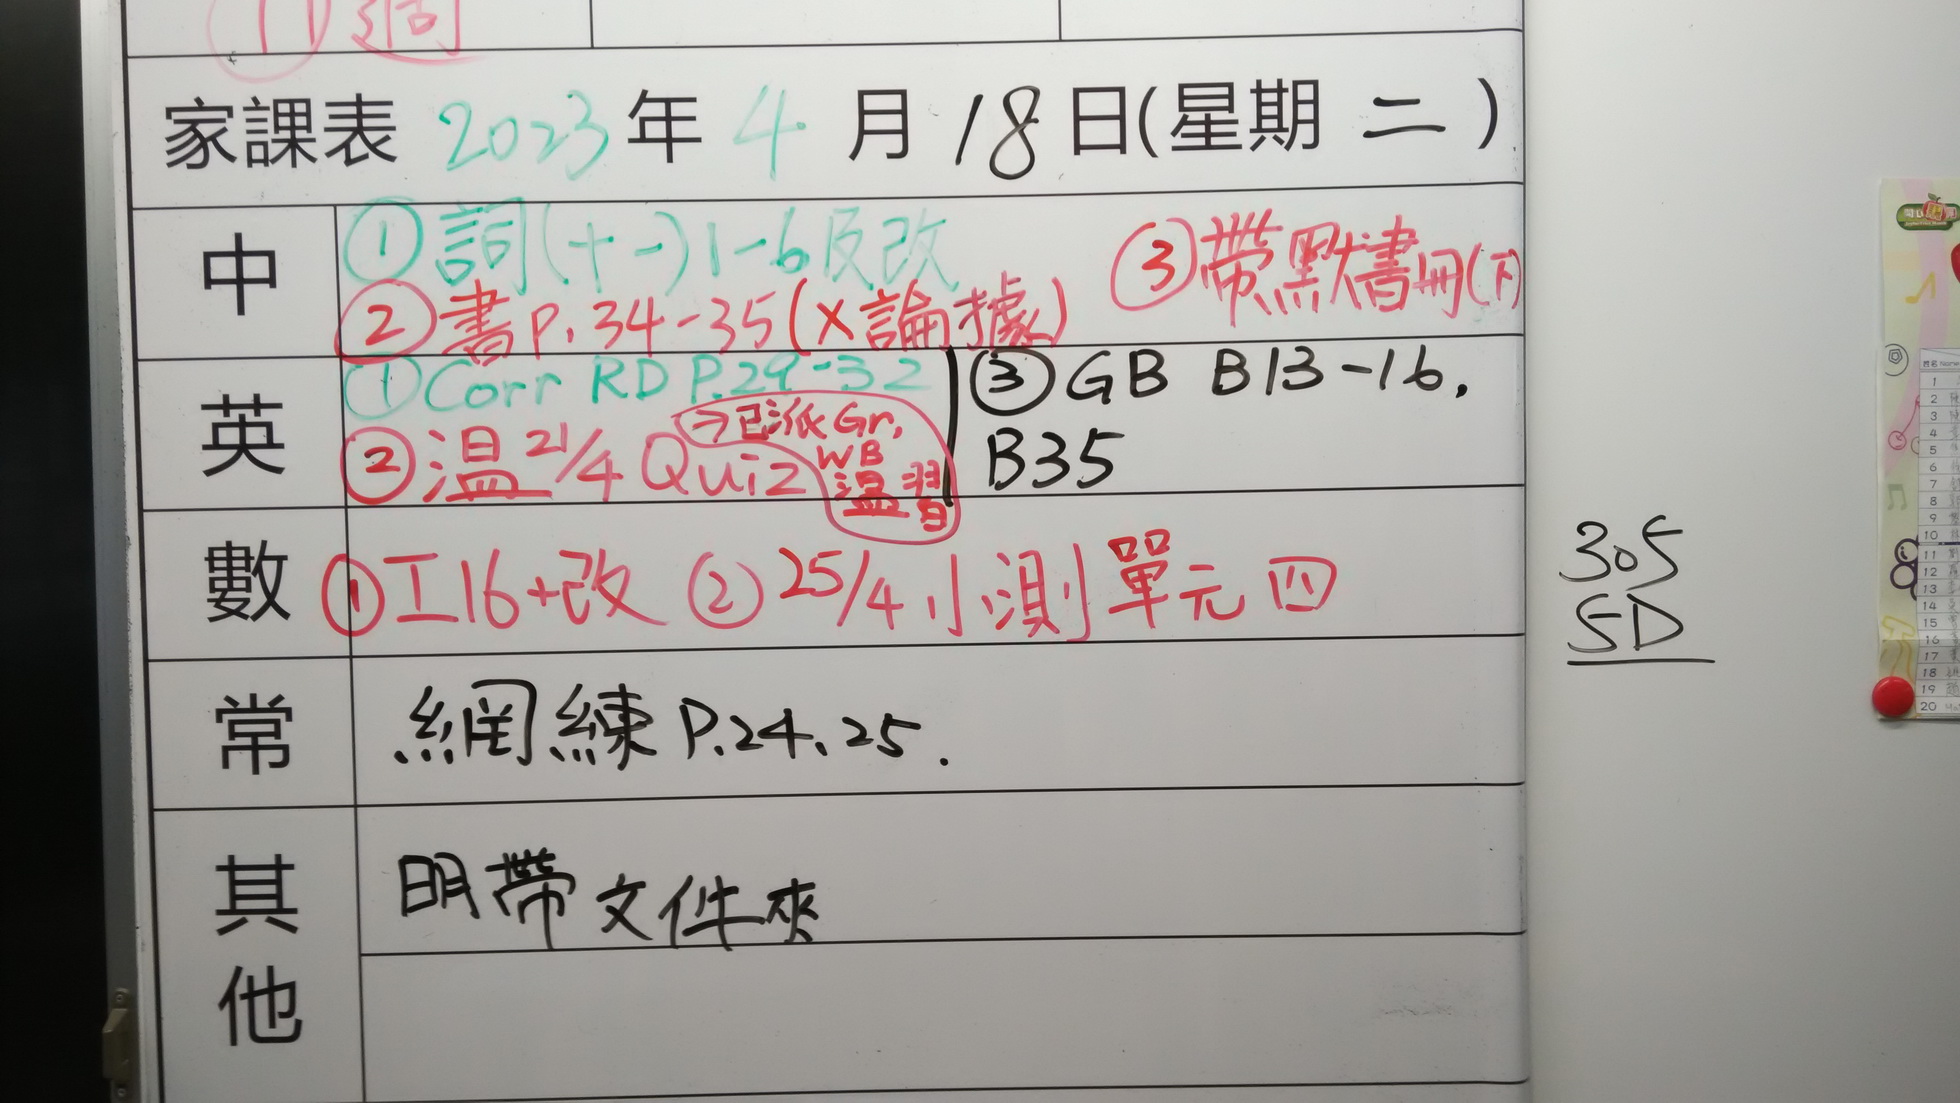 11週
家課表 2023年 4 月 18日(星期 二 )
中
①詞(十一)1-6及改
②書P.34-35(X論據)
③帶默書冊(下)
英
①Corr RD P.29-32
②溫21/4 Quiz
→已派Gr,
WB
溫習
③GB B13-16,
B35
數
①工16+改 ②25/4小測單元四
常
網練P.24、25.
其他
明帶文件夾
305
5D
1
2
3
4
5
6
7
8
9
10
11
12
13
14
15
16
17
18
19
20